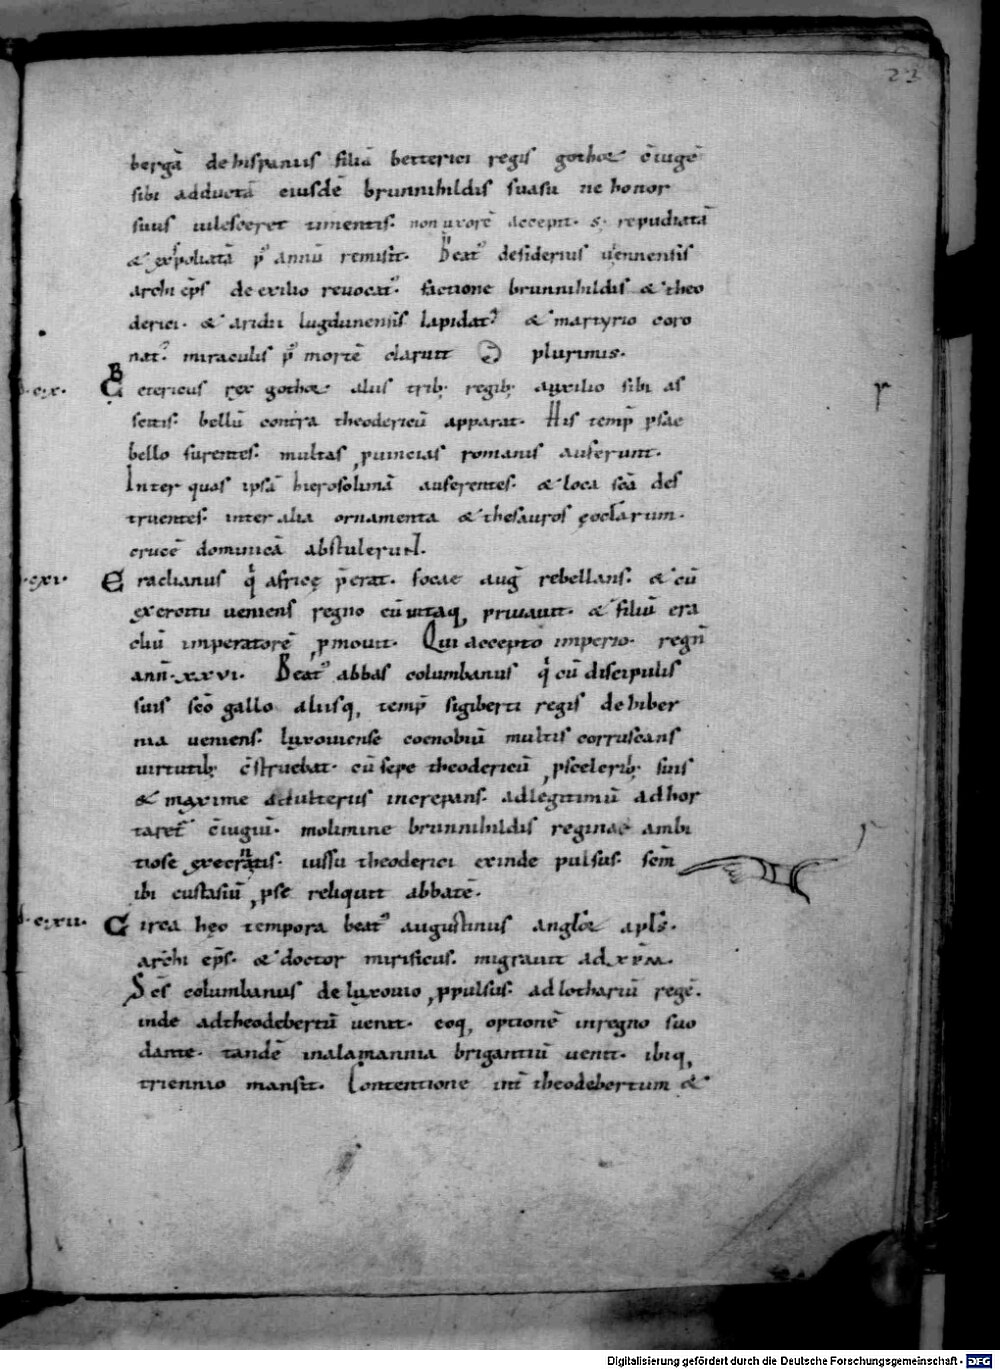 23
bergā de hispaniis filiā betterici regis gothoꝝ ꝯ̄iugē
sibi adductā eiusdē brunnihildis suasu ne honor
suus uilesceret timentis. non uxorē accepit. sꝫ repudiatā
& expoliatā p̄ annū remisit. Beatꝰ desiderius uiennensis
archi ep̄s de exilio reuocatꝰ. factione brunnihildis & theo
derici. & aridii lugdunensis lapidatꝰ & martyrio coro
natꝰ. miraculis p̄ mortē claruit plurimis.
·cx· Betericus rex gothoꝝ aliis trib; regib; auxilio sibi as
scitis. bellū contra theodericū apparat. His temp̄ psae
bello furentes. multas ꝓuincias romanis auferunt.
Inter quas ipsā hierosolimā auferentes. & loca sc̄a des
truentes. inter alia ornamenta & thesauros ęcclarum.
crucē dominicā abstulerunt.
·cxi· Eraclianus q̇ africę p̄erat. focae auḡ rebellans. & cū
exercitu ueniens regno eū uitaq, priuauit. & filiū era
cliū imperatorē ꝓmouit. Qui accepto imperio. regn̄
ann̄. xxvi. Beatꝰ abbas columbanus q̇ cū discipulis
suis sc̄o gallo aliisq, temp̄ sigiberti regis de hiber
nia ueniens. luxouiense coenobiū multis corruscans
uirtutib; ꝯ̄struebat. cū sepe theodericū ꝓ scelerib; suis
& maxime adulteriis increpans. ad legitimū ad hor
taret̄ ꝯ̄iugiū. molimine brunnihildis reginae ambi
tiose execrantis. iussu theoderici exinde pulsus. sc̄m
ibi eustasiū ꝓ se reliquit abbatē.
·cxii· Circa hęc tempora beatꝰ augustinus angloꝝ apl̄s.
archi ep̄s. & doctor mirificus. migrauit ad xp̄m.
Sc̄s columbanus de luxouio ꝓpulsus. ad lothariū regē.
inde ad theodebertū uenit. eoq, optionē in regno suo
dante. tandē in alamannia brigantiū uenit. ibiq,
triennio mansit. Contentione int̄ theodebertum &
Digitalisierung gefördert durch die Deutsche Forschungsgemeinschaft - DFG